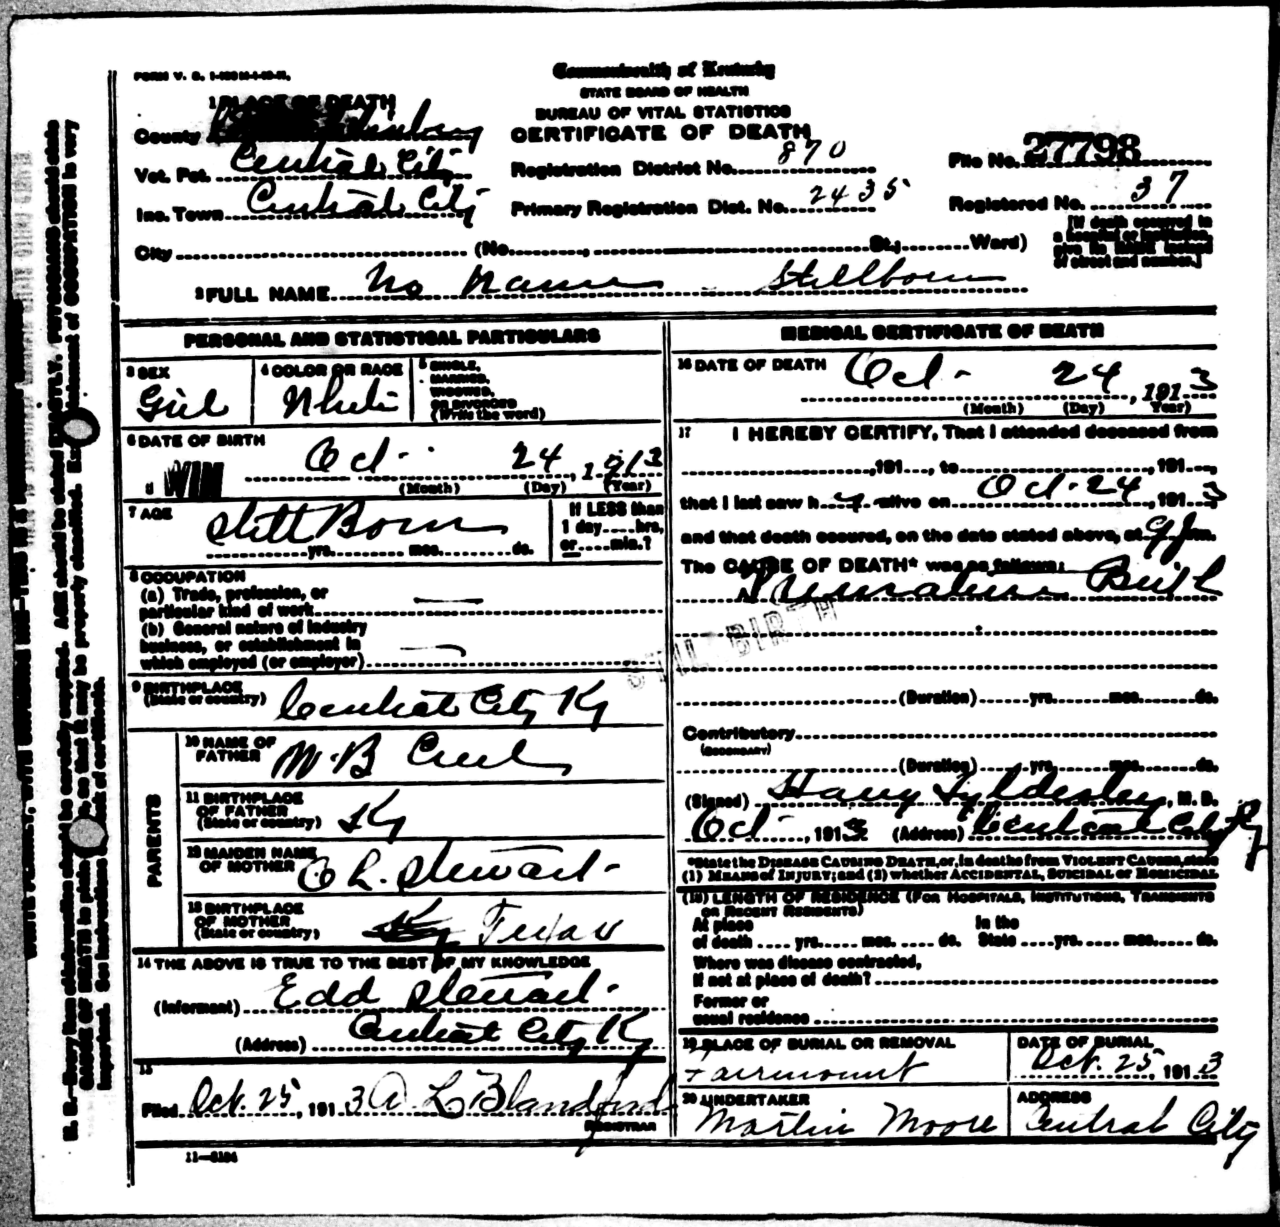 Commonwealth of Kentucky
STATE BOARD OF HEALTH
BUREAU OF VITAL STATISTICS
CERTIFICATE OF DEATH
1 PLACE OF DEATH
County
Vot. Pct. Central City
Inc. Town Central City
City (No. , St.; Ward)
Registration District No. 870
Primary Registration Dist. No. 2435
File No. 27798
Registered No. 37
[If death occurred in
a hospital or institution
give its NAME instead
of street and number.]
2 FULL NAME No Name Stillborn
PERSONAL AND STATISTICAL PARTICULARS
3 SEX
Girl
4 COLOR OR RACE
White
5 SINGLE,
MARRIED,
WIDOWED,
OR DIVORCED
(Write the word)
6 DATE OF BIRTH
Oct. 24, 1913
(Month) (Day) (Year)
7 AGE
Still Born
yrs. mos. ds.
If LESS than
1 day hrs.
or min.?
8 OCCUPATION
(a) Trade, profession, or
particular kind of work —
(b) General nature of industry
business, or establishment in
which employed (or employer) —
9 BIRTHPLACE
(State or country) Central City Ky
PARENTS
10 NAME OF
FATHER M. B.
11 BIRTHPLACE
OF FATHER
(State or country) Ky
12 MAIDEN NAME
OF MOTHER O L. Stewart
13 BIRTHPLACE
OF MOTHER
(State or country) Ky Texas
14 THE ABOVE IS TRUE TO THE BEST OF MY KNOWLEDGE
(Informant) Edd Stewart
(Address) Central City Ky
15
Filed Oct. 25, 1913 A L Blandford
REGISTRAR
11—5184
MEDICAL CERTIFICATE OF DEATH
16 DATE OF DEATH Oct - 24, 1913
(Month) (Day) Year)
17 I HEREBY CERTIFY, That I attended deceased from
, 191 , to , 191 ,
that I last saw h alive on Oct. 24, 1913,
and that death occured, on the date stated above, at 9 m.
The CAUSE OF DEATH* was as follows:
Premature Birth
STILL BIRTH
(Duration) yrs. mos. ds.
Contributory
(SECONDARY)
(Duration) yrs. mos. ds.
(Signed) Harry Tyldesley, M. D.
Oct , 1913 (Address) Central City Ky
*State the DISEASE CAUSING DEATH, or, in deaths from VIOLENT CAUSES, state
(1) MEANS of INJURY; and (2) whether ACCIDENTAL, SUICIDAL or HOMICIDAL
(18) LENGTH OF RESIDENCE (FOR HOSPITALS, INSTITUTIONS, TRANSIENTS
OR RECENT RESIDENTS)
At place In the
of death yrs. mos. ds. State yrs. mos. ds.
Where was disease contracted,
If not at place of death?
Former or
usual residence
19 PLACE OF BURIAL OR REMOVAL
Fairmount
DATE OF BURIAL
Oct. 25, 1913
20 UNDERTAKER
Martin Moore
ADDRESS
Central City